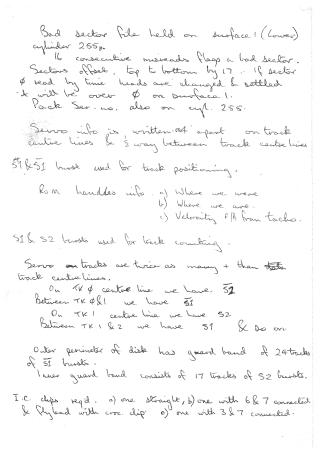 Bad sector file held on surface 1 (Lower)
cylinder 255.
16 consecutive misreads flags a bad sector.
Sectors offset, top to bottom by 17. If sector
Ø read by time heads are changed & settled
it will be over Ø on surface 1.
Pack Ser. no. also on cyl. 255.
Servo info is written apart on track
centre lines & ½ way between track centre lines
S1 & S̄1 burst used for track positioning.
ROM handles info. a) Where we were
b) Where we are.
c) Velocity F/B from tacho.
S1 & S2 bursts used for track counting.
Servo on tracks are twice as many than
track centrelines.
On TK Ø centre line we have S̄1
Between TK Ø & 1 we have S̄1
On TK 1 centre line we have S2
Between TK 1 & 2 we have S1 & so on
Outer perimeter of disk has guard band of 24 tracks
of S̄1 bursts.
Inner guard band consists of 17 tracks of S2 bursts.
I.C. clips reqd. a) one straight, b) one with 6 & 7 connected
& fly lead with croc clip c) one with 3 & 7 connected.